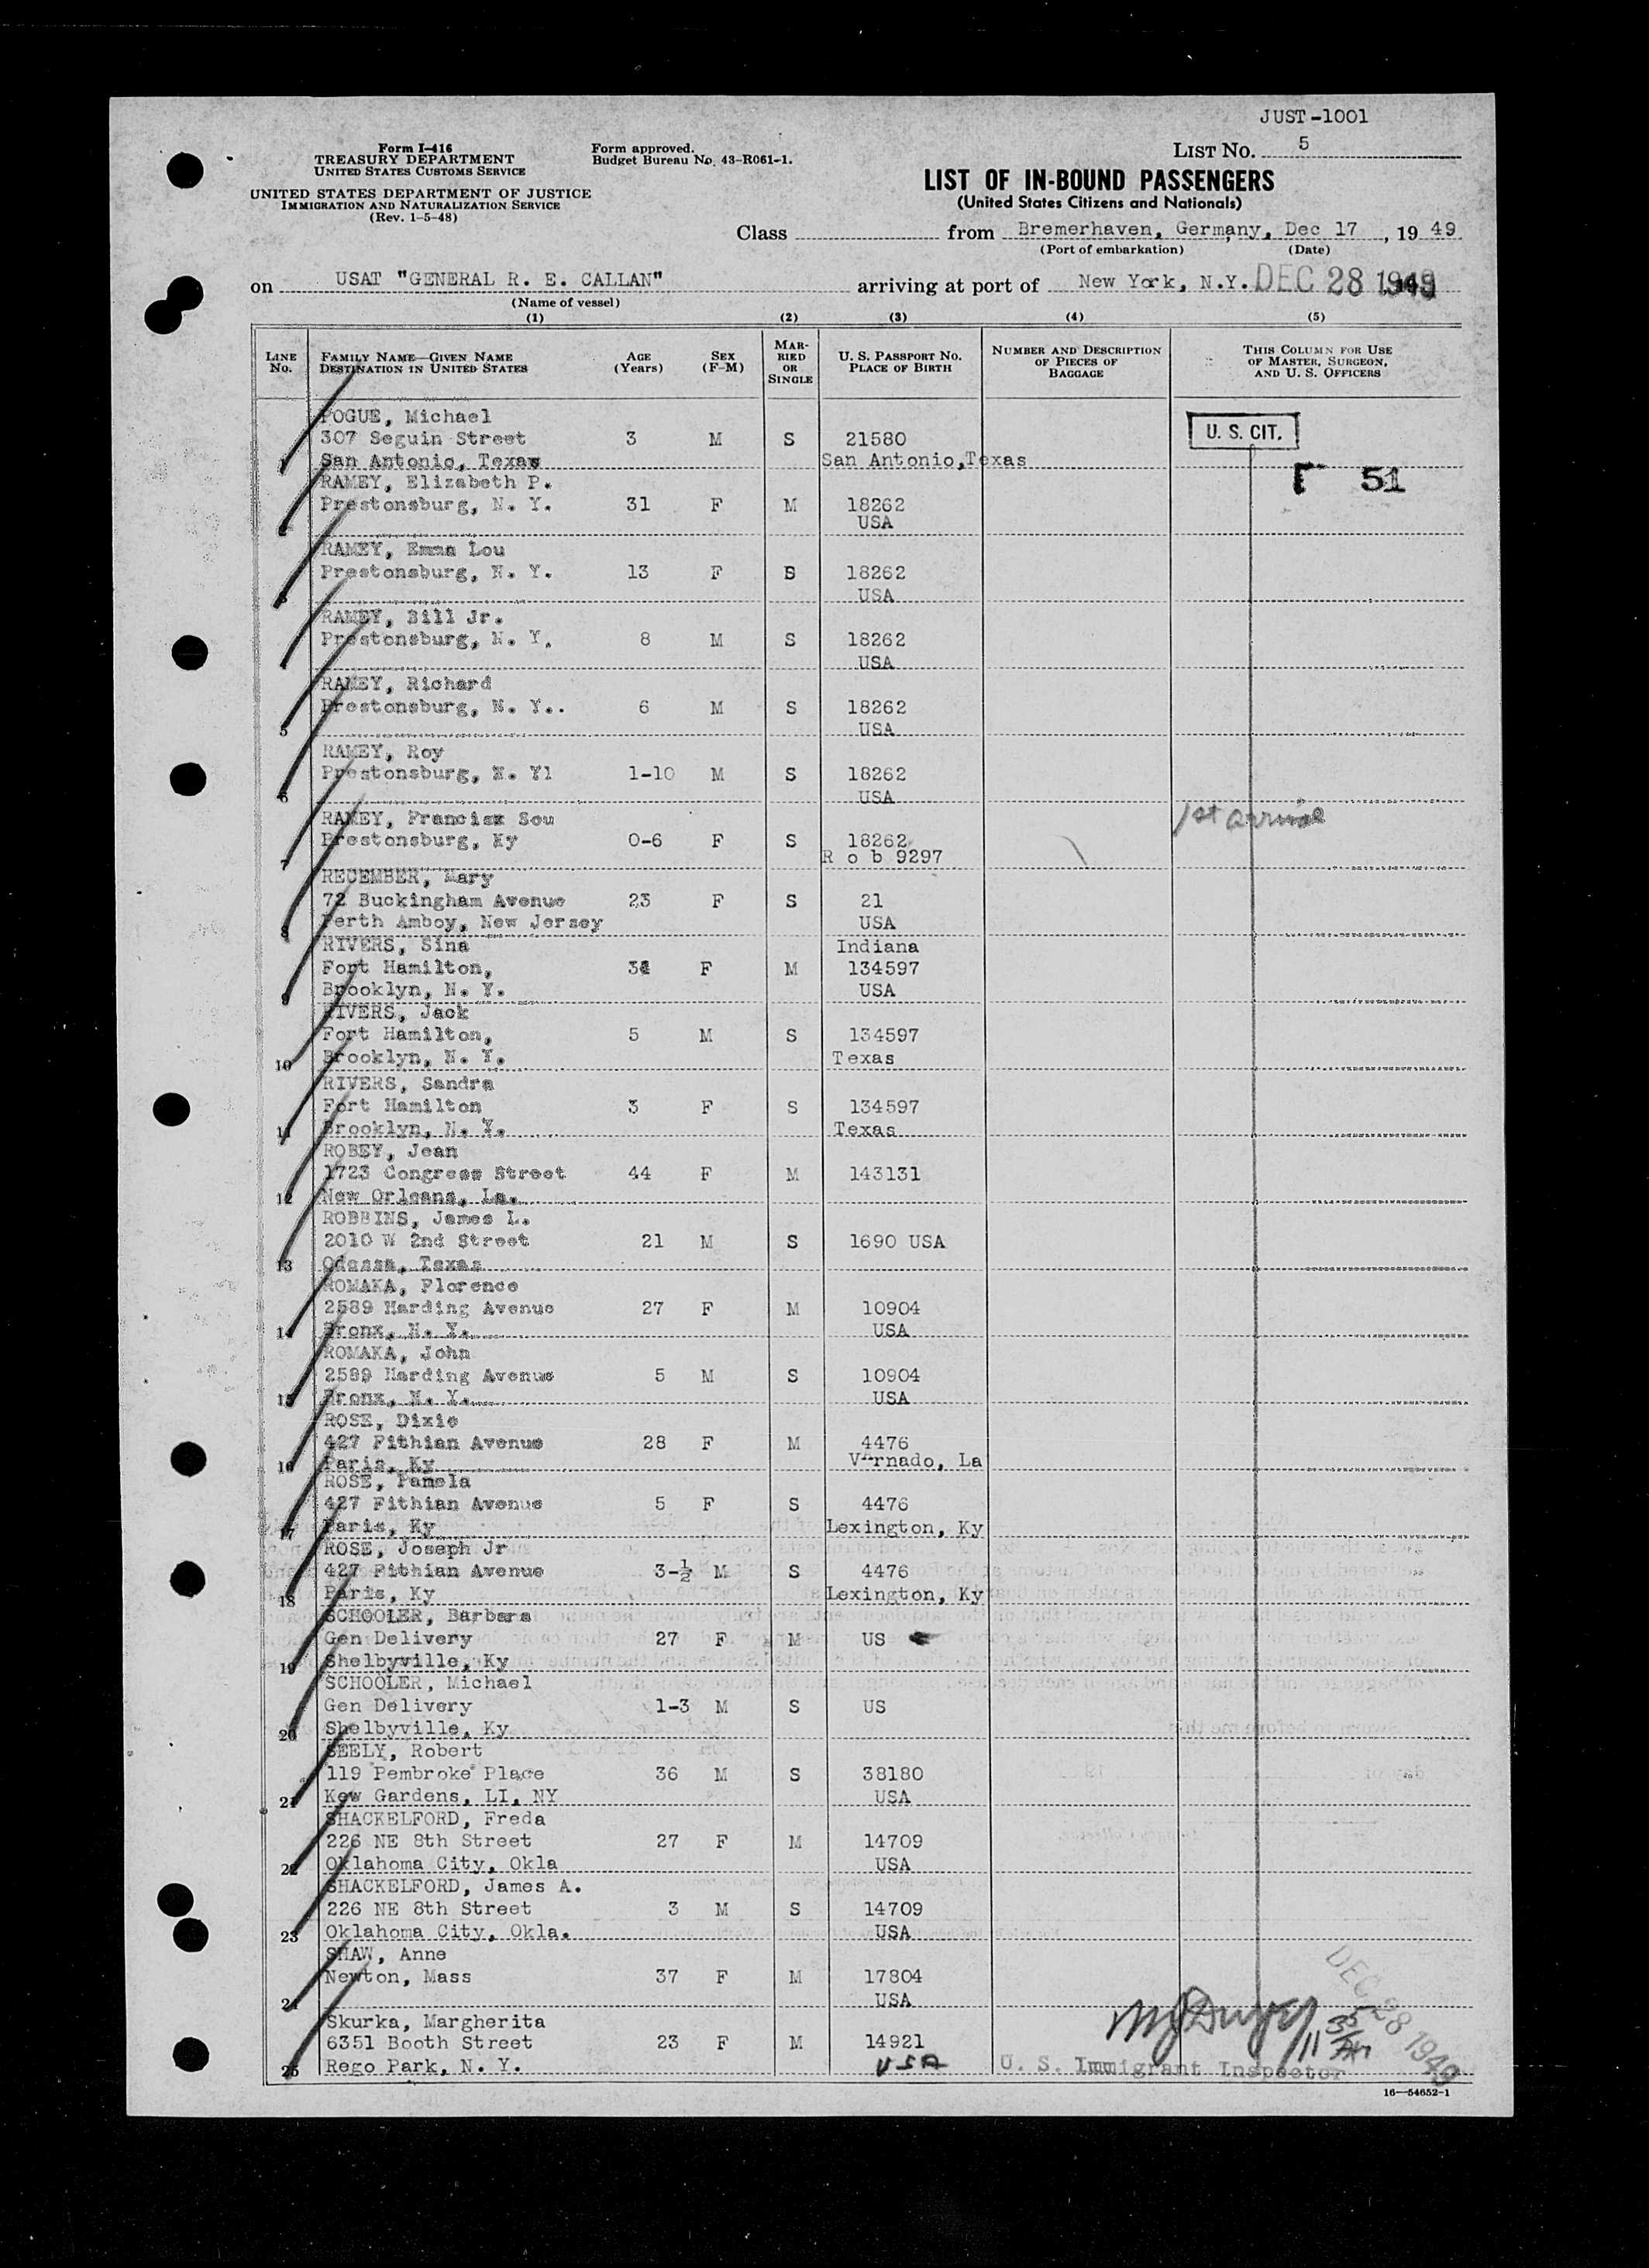 JUST-1001
Form I-416
TREASURY DEPARTMENT
UNITED STATES CUSTOMS SERVICE
UNITED STATES DEPARTMENT OF JUSTICE
IMMIGRATION AND NATURALIZATION SERVICE
(Rev. 1-5-48)
Form approved.
Budget Bureau No. 43-R061-1.
LIST NO. 5
LIST OF IN-BOUND PASSENGERS
(United States Citizens and Nationals)
Class from Bremerhaven, Germany, Dec 17, 1949
(Port of embarkation) (Date)
on USAT "GENERAL R. E. CALLAN" arriving at port of New York, N.Y. DEC 28 1949
(Name of vessel)
(1) (2) (3) (4) (5)
LINE NO.
FAMILY NAME—GIVEN NAME
DESTINATION IN UNITED STATES
AGE (Years)
SEX (F-M)
MARRIED OR SINGLE
U. S. PASSPORT NO.
PLACE OF BIRTH
NUMBER AND DESCRIPTION OF PIECES OF BAGGAGE
THIS COLUMN FOR USE OF MASTER, SURGEON, AND U. S. OFFICERS
POGUE, Michael
307 Seguin Street 3 M S 21580 U. S. CIT.
1 San Antonio, Texas San Antonio, Texas
51
RAMEY, Elizabeth P.
Prestonsburg, N. Y. 31 F M 18262
2 USA
RAMEY, Emma Lou
Prestonsburg, N. Y. 13 F S 18262
3 USA
RAMEY, Bill Jr.
Prestonsburg, N. Y. 8 M S 18262
4 USA
RAMEY, Richard
Prestonsburg, N. Y.. 6 M S 18262
5 USA
RAMEY, Roy
Prestonsburg, N. Yl 1-10 M S 18262
6 USA
RAMEY, Francisx Sou 1st arrival
Prestonsburg, Ky 0-6 F S 18262
7 R o b 9297
RECEMBER, Mary
72 Buckingham Avenue 23 F S 21
8 Perth Amboy, New Jersey USA
RIVERS, Sina Indiana
Fort Hamilton, F M 134597
9 Brooklyn, N. Y. USA
RIVERS, Jack
Fort Hamilton, 5 M S 134597
10 Brooklyn, N. Y. Texas
RIVERS, Sandra
Fort Hamilton 3 F S 134597
11 Brooklyn, N. Y. Texas
ROBEY, Jean
1723 Congress Street 44 F M 143131
12 New Orleans, La.
ROBBINS, James L.
2010 W 2nd Street 21 M S 1690 USA
13 Odessa, Texas
ROMAKA, Florence
2589 Harding Avenue 27 F M 10904
14 Bronx, N. Y. USA
ROMAKA, John
2589 Harding Avenue 5 M S 10904
15 Bronx, N. Y. USA
ROSE, Dixie
427 Fithian Avenue 28 F M 4476
16 Paris, Ky Varnado, La
ROSE, Pamela
427 Fithian Avenue 5 F S 4476
17 Paris, Ky Lexington, Ky
ROSE, Joseph Jr
427 Fithian Avenue 3-½ M S 4476
18 Paris, Ky Lexington, Ky
SCHOOLER, Barbara
Gen Delivery 27 F M US
19 Shelbyville, Ky
SCHOOLER, Michael
Gen Delivery 1-3 M S US
20 Shelbyville, Ky
SEELY, Robert
119 Pembroke Place 36 M S 38180
21 Kew Gardens, LI, NY USA
SHACKELFORD, Freda
226 NE 8th Street 27 F M 14709
22 Oklahoma City, Okla USA
SHACKELFORD, James A.
226 NE 8th Street 3 M S 14709
23 Oklahoma City, Okla. USA
SHAW, Anne
Newton, Mass 37 F M 17804
24 USA
DEC 28 1949
Skurka, Margherita
6351 Booth Street 23 F M 14921
25 Rego Park, N. Y. USA
U. S. Immigrant Inspector
16—54652-1